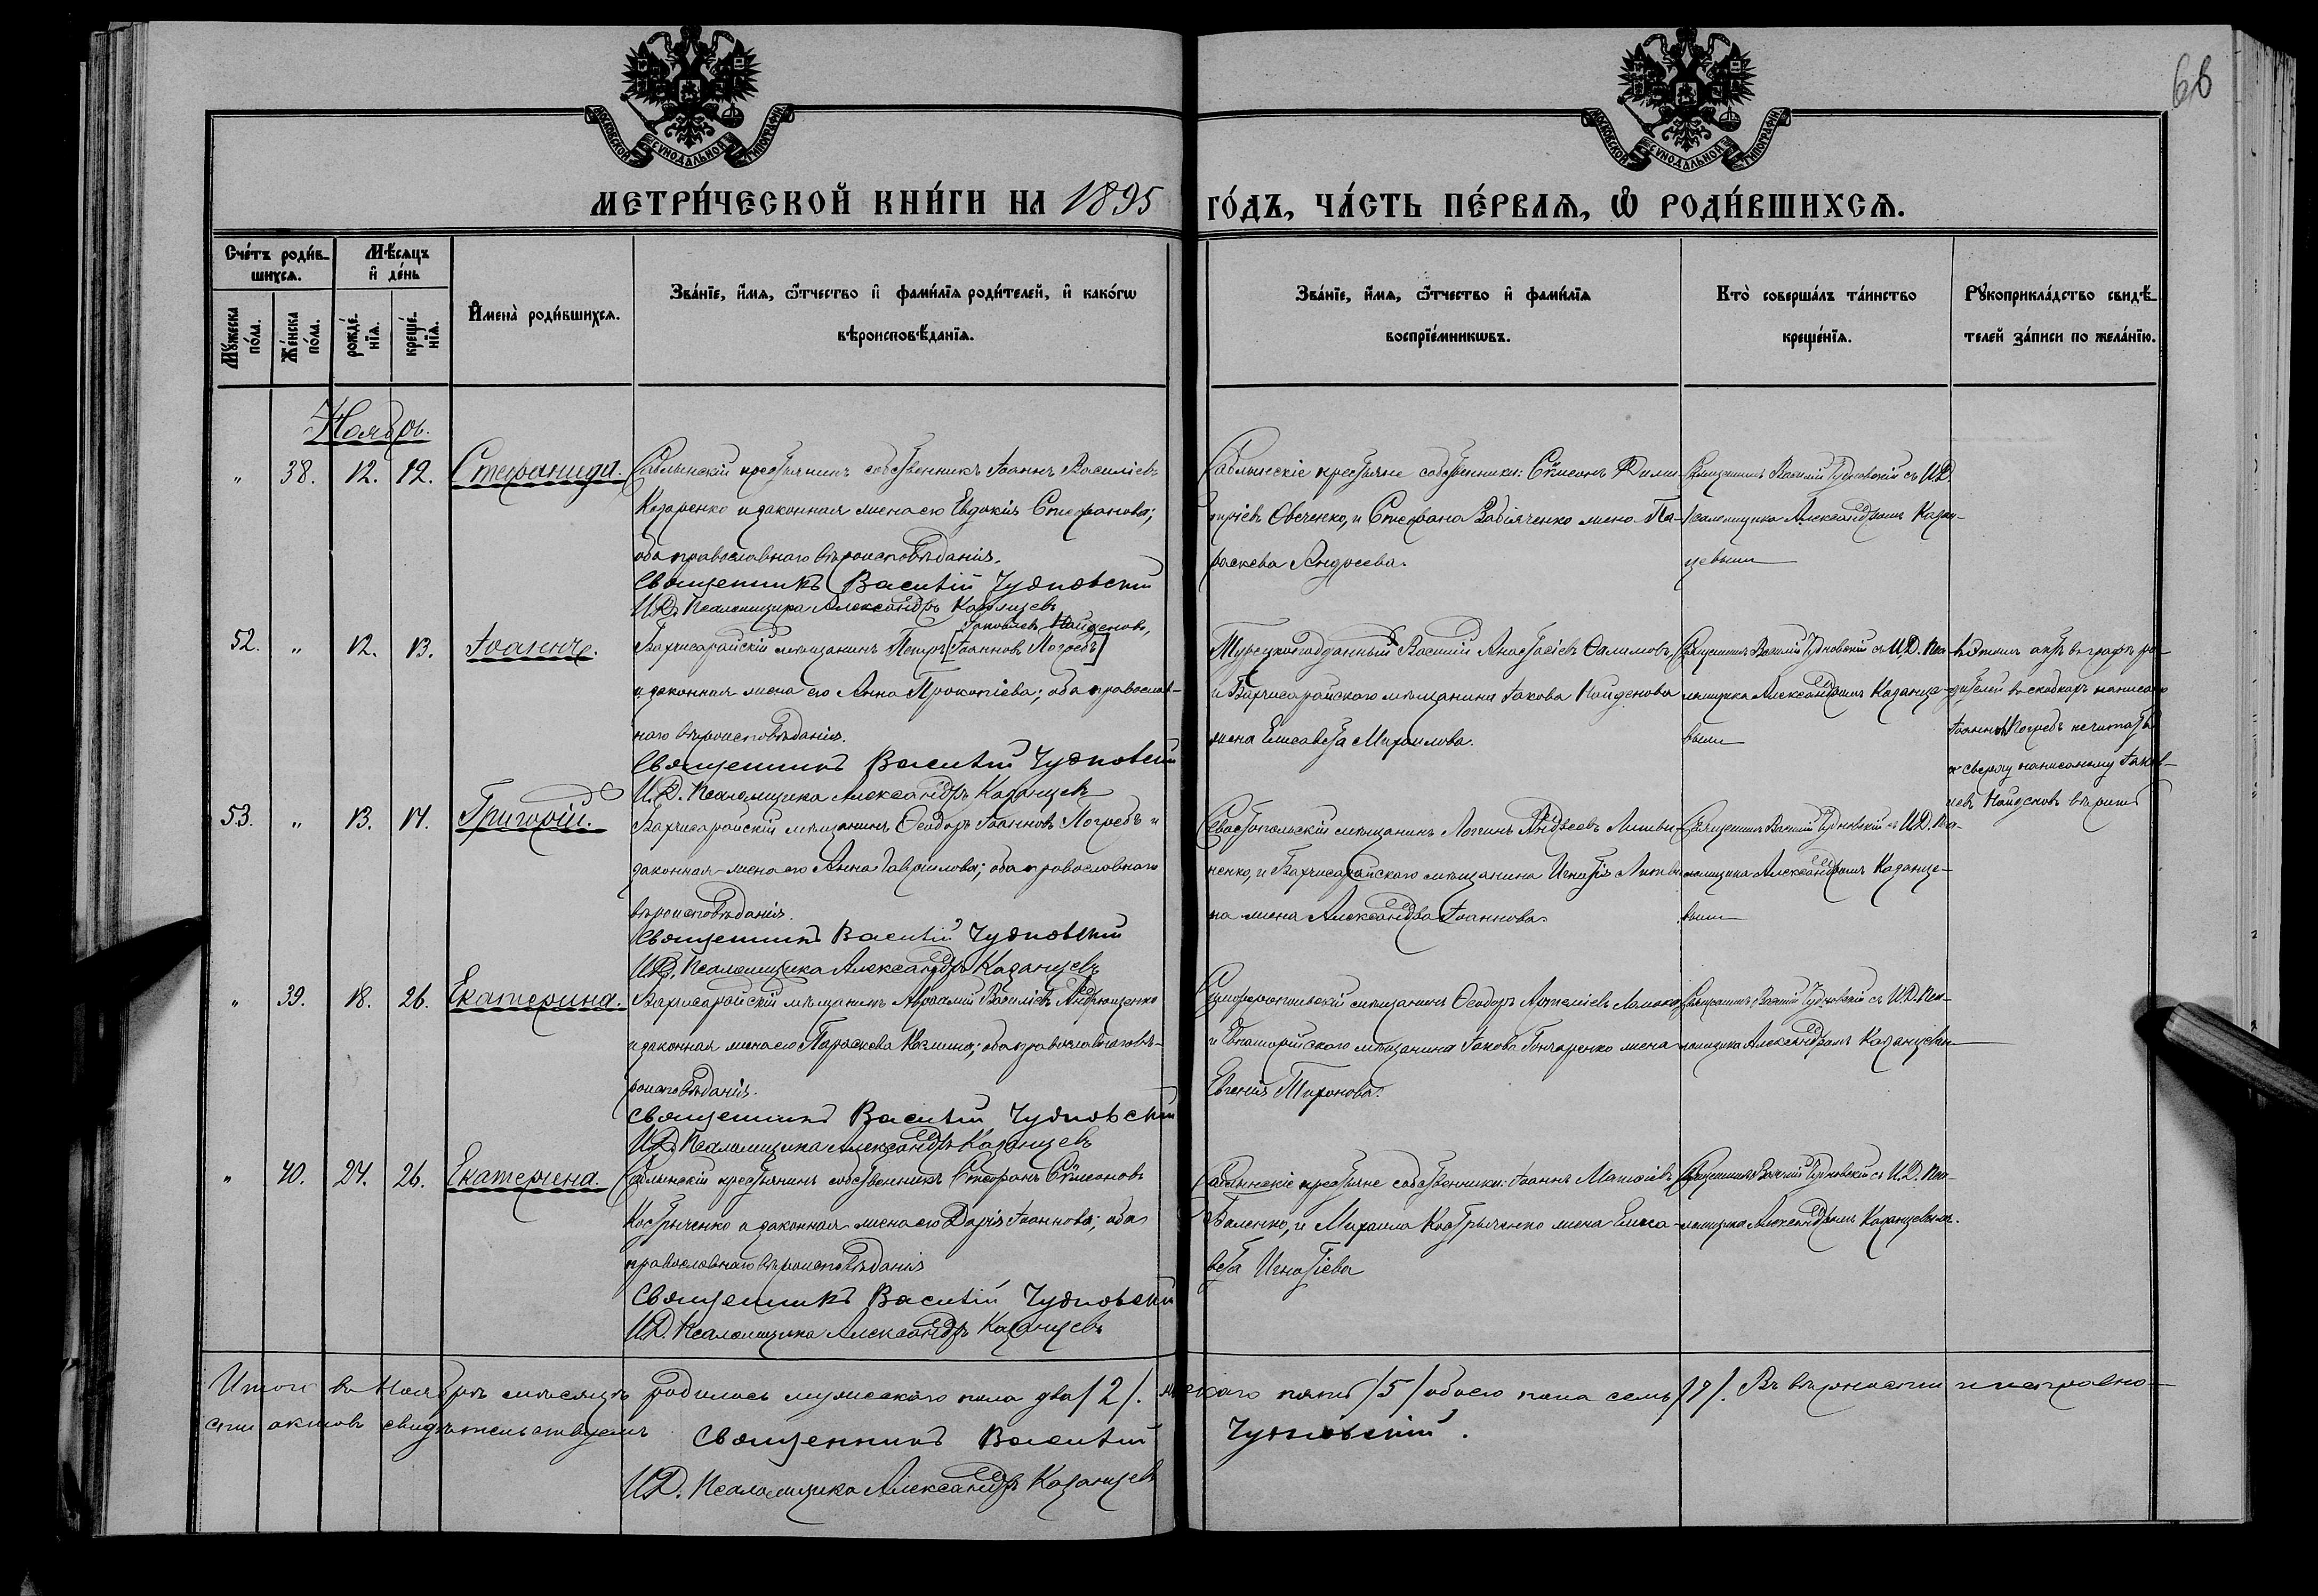 66
МОСКОВСКОЙ СУНОДАЛЬНОЙ ТИПОГРАФІИ
МОСКОВСКОЙ СУНОДАЛЬНОЙ ТИПОГРАФІИ
МЕТРИ́ЧЕСКОЙ КНИ́ГИ НА 1895 ГО́ДЪ, ЧА́СТЬ ПЕ́РВАѦ, Ѡ҆ РОДИ́ВШИХСѦ.
Сче́тъ роди́в-
шихсѧ.
Мѣ́сѧцъ
и҆ де́нь
Мꙋ́жеска по́ла.
Же́нска по́ла.
рожде́нїѧ.
креще́нїѧ.
И҆мена̀ роди́вшихсѧ.
Зва́нїе, и҆́мѧ, ѻ҆́тчество и҆ фами́лїѧ роди́телей, и҆ како́гѡ
вѣроисповѣ́данїѧ.
Зва́нїе, и҆́мѧ, ѻ҆́тчество и҆ фами́лїѧ
воспрїе́мникѡвъ.
Кто̀ соверша́лъ та́инство
креще́нїѧ.
Рꙋкоприкла́дство свидѣ́-
телей за́писи по жела́нїю.
Ноябрь.
" 38. 12. 12. Стефанида.
Саблынскій крестьянинъ собственникъ Іоаннъ Василіевъ
Козаренко и законная жена его Евдокія Стефанова;
оба православнаго вѣроисповѣданія.
Священникъ Василій Чудновскій
И.Д. Псаломщика Александръ Казанцевъ
Саблынскіе крестьяне собственники: Сѵмеонъ Дими-
тріевъ Овченко, и Стефана Забіяченко жена Па-
раскева Андреева.
Священникъ Василій Чудновскій съ И.Д.
Псаломщика Александромъ Казан-
цевымъ
52. " 12. 13. Іоаннъ.
Іаковлевъ Найденовъ,
Бахчисарайскій мѣщанинъ Петръ [Іоанновъ Погребъ]
и законная жена его Анна Прокопіева; оба православ-
наго вѣроисповѣданія.
Священникъ Василій Чудновскій
И.Д. Псаломщика Александръ Казанцевъ
Турецкоподданный Василій Анастасіевъ
и Бахчисарайского мѣщанина Іакова Найденова
жена Елисавета Михаилова.
Священникъ Василій Чудновскій съ И.Д. Пса-
ломщика Александромъ Казанце-
вымъ
въ этомъ актѣ въ графѣ ро-
дителей въ скобкахъ написано
Іоанновъ Погребъ не читать
а сверху написаному Іаков-
левъ Найденовъ вѣрить
53. " 13. 14. Григорій.
Бахчисарайскій мѣщанинъ Ѳеодоръ Іоанновъ Погребъ и
законная жена его Анна Гавріилова; оба православнаго
вѣроисповѣданія.
Священникъ Василій Чудновскій
И.Д. Псаломщика Александръ Казанцевъ
Севастопольскій мѣщанинъ Логинъ Андреевъ Литви-
ненко, и Бахчисарайского мѣщанина Игнатія Литви-
на жена Александра Іоаннова.
Священникъ Василій Чудновскій съ И.Д. Пса-
ломщика Александромъ Казанце-
вымъ
" 39. 18. 26. Екатерина.
Бахчисарайскій мѣщанинъ Афанасій Василіевъ Андрющенко
и законная жена его Параскева Козмина; оба православнаго вѣ-
роисповѣданія.
Священникъ Василій Чудновскій
И.Д. Псаломщика Александръ Казанцевъ
Симферопольскій мѣщанинъ Ѳеодоръ Артеміевъ
и Евпаторійского мѣщанина Іакова Гончаренко жена
Евгенія Миронова.
Священникъ Василій Чудновскій съ И.Д. Пса-
ломщика Александромъ Казанцевымъ
" 40. 24. 26. Екатерина.
Саблынскій крестьянинъ собственникъ Стефанъ Сѵмеоновъ
Кострыченко и законная жена его Дарія Іоаннова; оба
православнаго вѣроисповѣданія
Священникъ Василій Чудновскій
И.Д. Псаломщика Александръ Казанцевъ
Саблынскіе крестьяне собственники: Іоаннъ Матѳіевъ
Баленко, и Михаила Кострыченко жена Елиса-
вета Игнатіева
Священникъ Василій Чудновскій съ И.Д. Пса-
ломщика Александромъ Казанцевымъ.
Итого въ Ноябрѣ мѣсяцѣ родилось мужескаго пола два /2/. женскаго пять /5/ обоего пола семь /7/. Въ вѣрности и исправно-
сти актовъ свидѣтельствуемъ Священникъ Василій Чудновскій.
И.Д. Псаломщика Александръ Казанцевъ